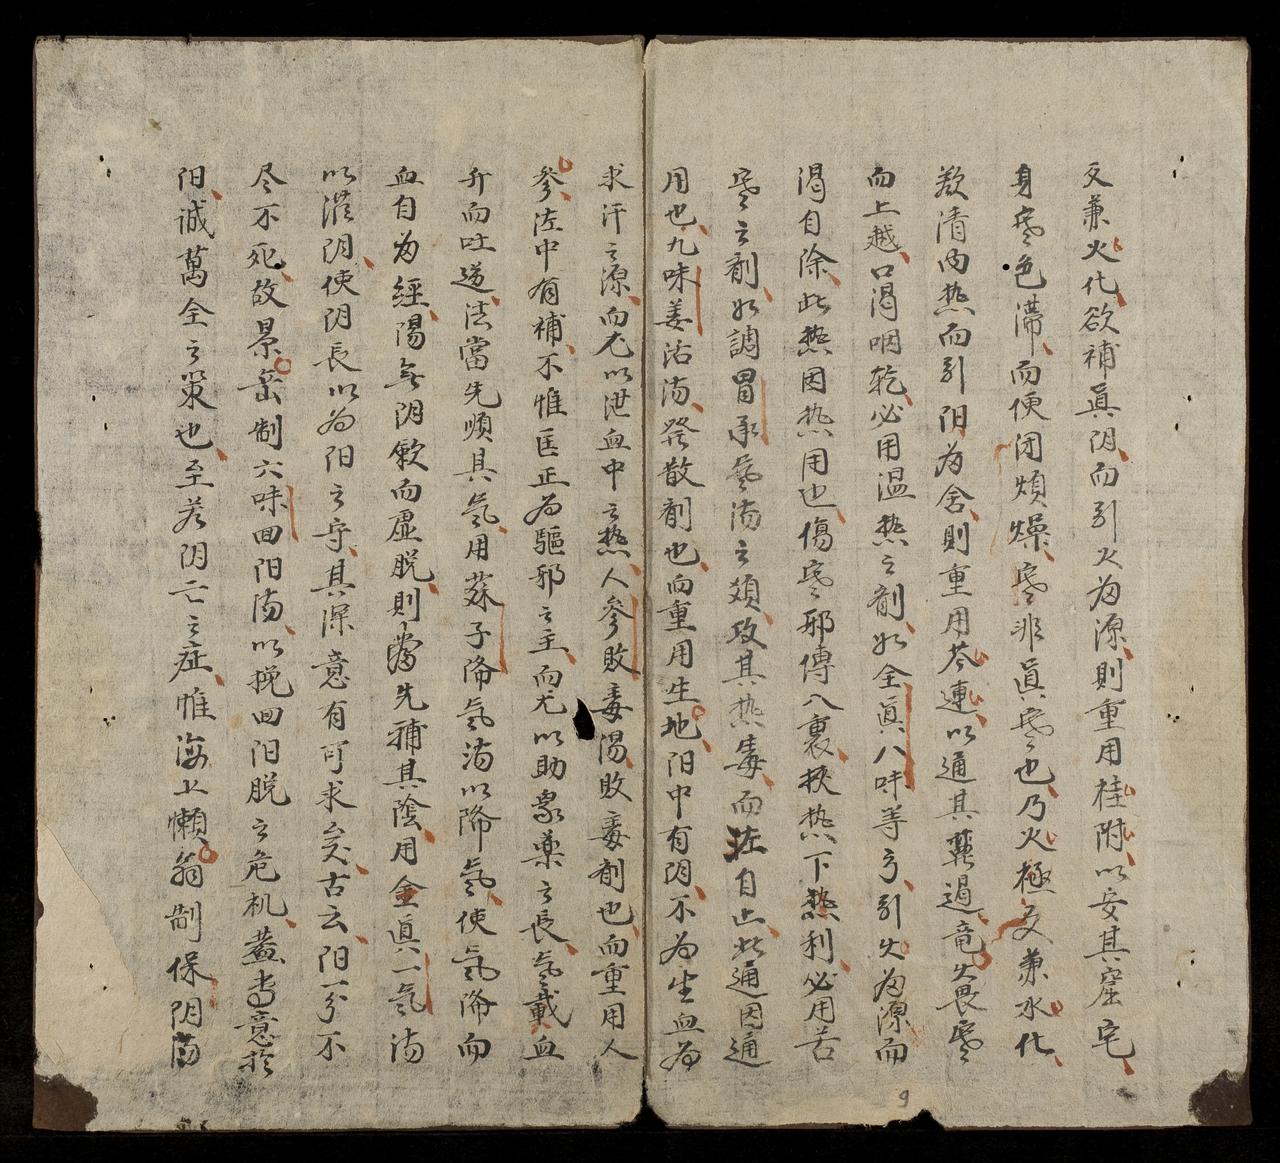 反兼火化欲補眞阴而引火为源則重用桂附以安其窟宅
身寒色滯而便闭煩燥寒非眞寒也乃火極反兼水化
欲清内热而引阳为舍則重用芩連以通其鬱遏竜火畏寒
而上越口渴咽乾必用温热之剤如全眞八味等方引火为源而
渴自除此热因热用也傷寒邪傳入裏挾热下热利必用苦
寒之剤如調胃承氣湯之類攻其热毒而泄自止此通因通
用也九味羌活湯發散剤也而重用生地阳中有阴不为生血为
求汗之源而尤以泄血中之热人參敗毒湯敗毒剤也而重用人
參佐中有補不惟匡正为驅邪之主而尤以助衆藥之長氣載血
升而吐逆法當先順其氣用蘇子降氣湯以降氣使氣降而
血自为經陽無阴斂而虚脱則當先補其陰用全眞一氣湯
以滋阴使阴長以为阳之守其深意有可求矣古云阳一分不
尽不死故景岳制六味回阳湯以挽回阳脱之危机盖专意於
阳誠萬全之策也至若阴亡之症惟海上懶翁制保阴湯